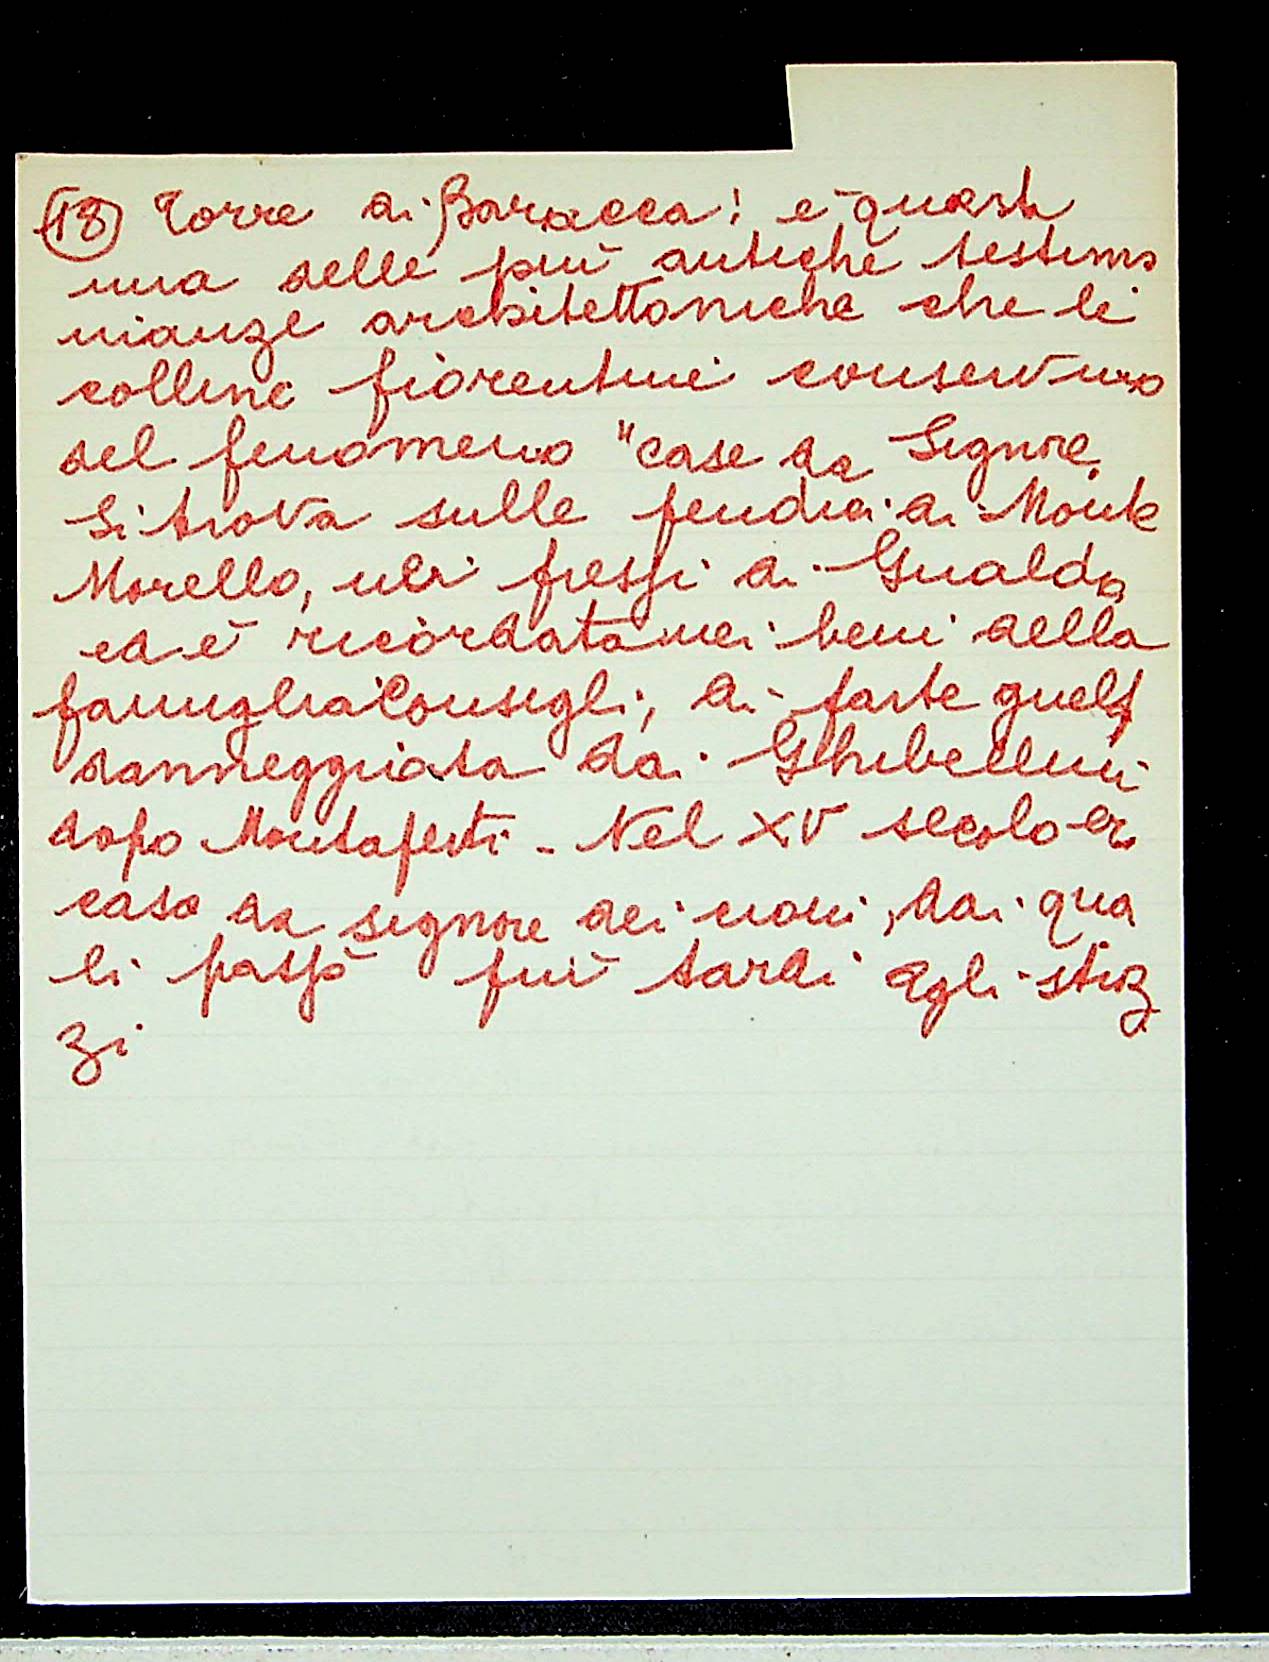 (18) Torre di Baracca: e' questa
una delle più antiche testimo
nianze architettoniche che le
colline fiorentine conservano
del fenomeno "case da Signore.
Si trova sulle pendici di Monte
Morello, nei pressi di Gualdo
ed è ricordata nei beni della
famiglia Consigli, di parte guelfa
danneggiata dai Ghibellini
dopo Montaperti - Nel XV secolo era
casa da signore dei , dai qua
li passò più tardi agli Stroz
zi